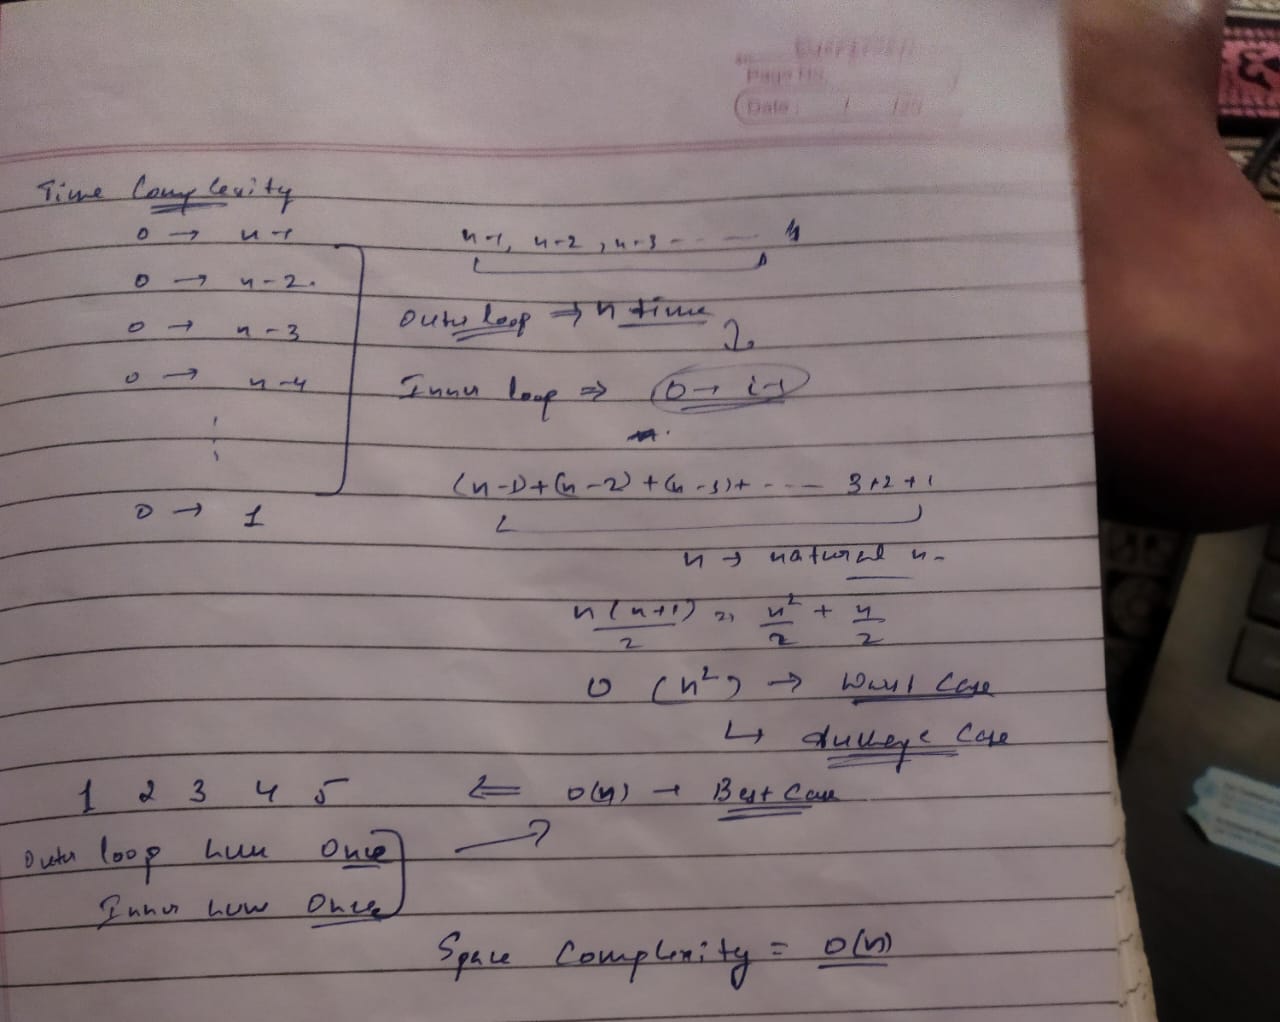 Page No.
Date / /20
Time Complexity
0 → n-1
0 → n-2.
0 → n-3
0 → n-4
0 → 1
n-1, n-2, n-3 - - - - -
Outer loop ⇒ n time
Inner loop ⇒ 0 → i-1
(n-1)+(n-2)+(n-3)+ - - - - 3+2+1
n → natural n-
n(n+1)/2 = n²/2 + n/2
O (n²) → Worst Case
↳ Average Case
1 2 3 4 5 ⇐ O(n) → Best Case
Outer loop run Once
Inner run Once
Space Complexity = O(n)